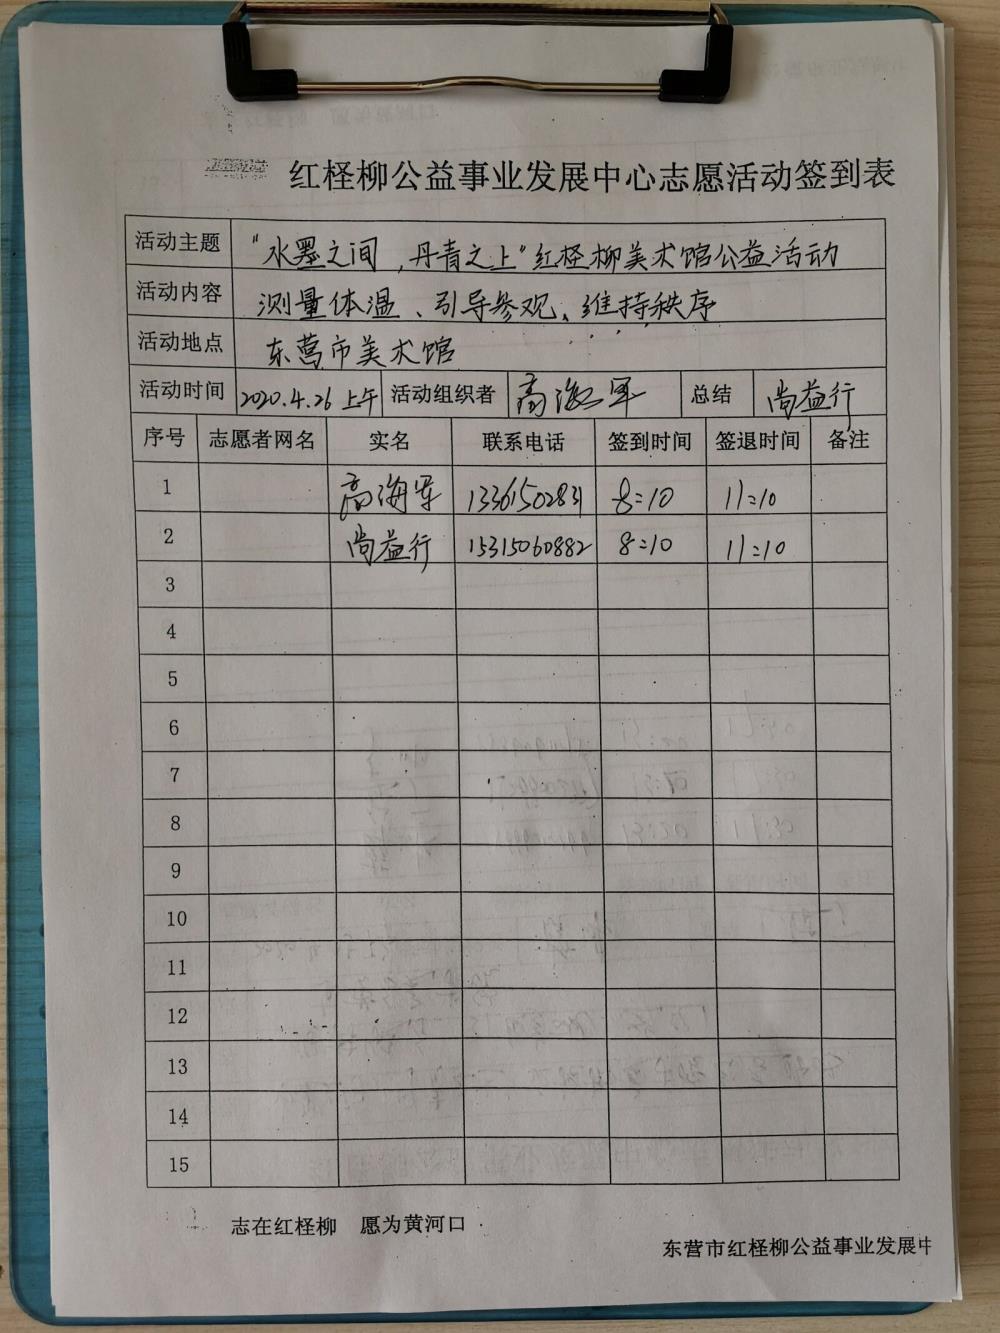 红柽柳公益事业发展中心志愿活动签到表
活动主题 "水墨之间，丹青之上"红柽柳美术馆公益活动
活动内容 测量体温、引导参观、维持秩序
活动地点 东营市美术馆
活动时间 2020.4.26上午 活动组织者 高海军 总结 尚益行
序号 志愿者网名 实名 联系电话 签到时间 签退时间 备注
1 高海军 13361502831 8:10 11:10
2 尚益行 15315060882 8:10 11:10
3
4
5
6
7
8
9
10
11
12
13
14
15
志在红柽柳 愿为黄河口
东营市红柽柳公益事业发展中